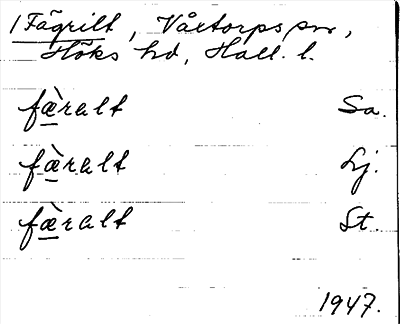 1 Fägrilt, Våxtorps sn,
Höks hd, Hall. l.
fæ̀ralt Sa.
fæ̀ralt Lj.
fæ̀ralt St.
1947.